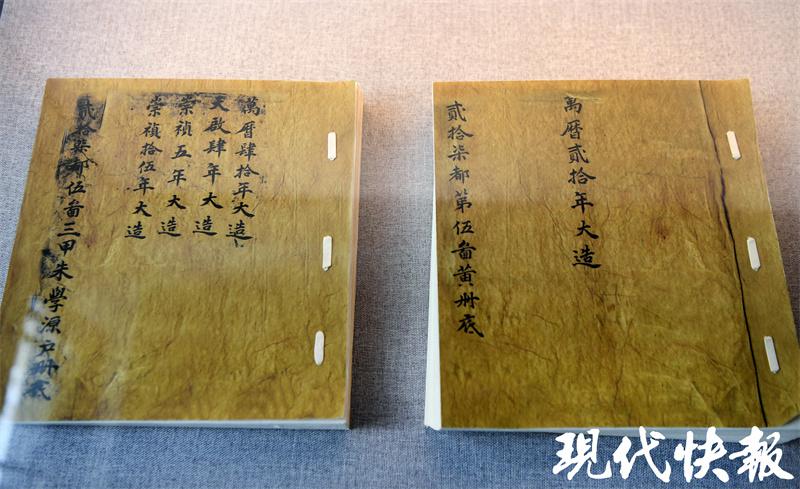 萬曆肆拾年大造
天啟肆年大造
崇禎五年大造
崇禎拾伍年大造
貳拾柒都伍啚三甲朱學源户册底
萬曆貳拾年大造
貳拾柒都第伍啚黃册底
現代快報